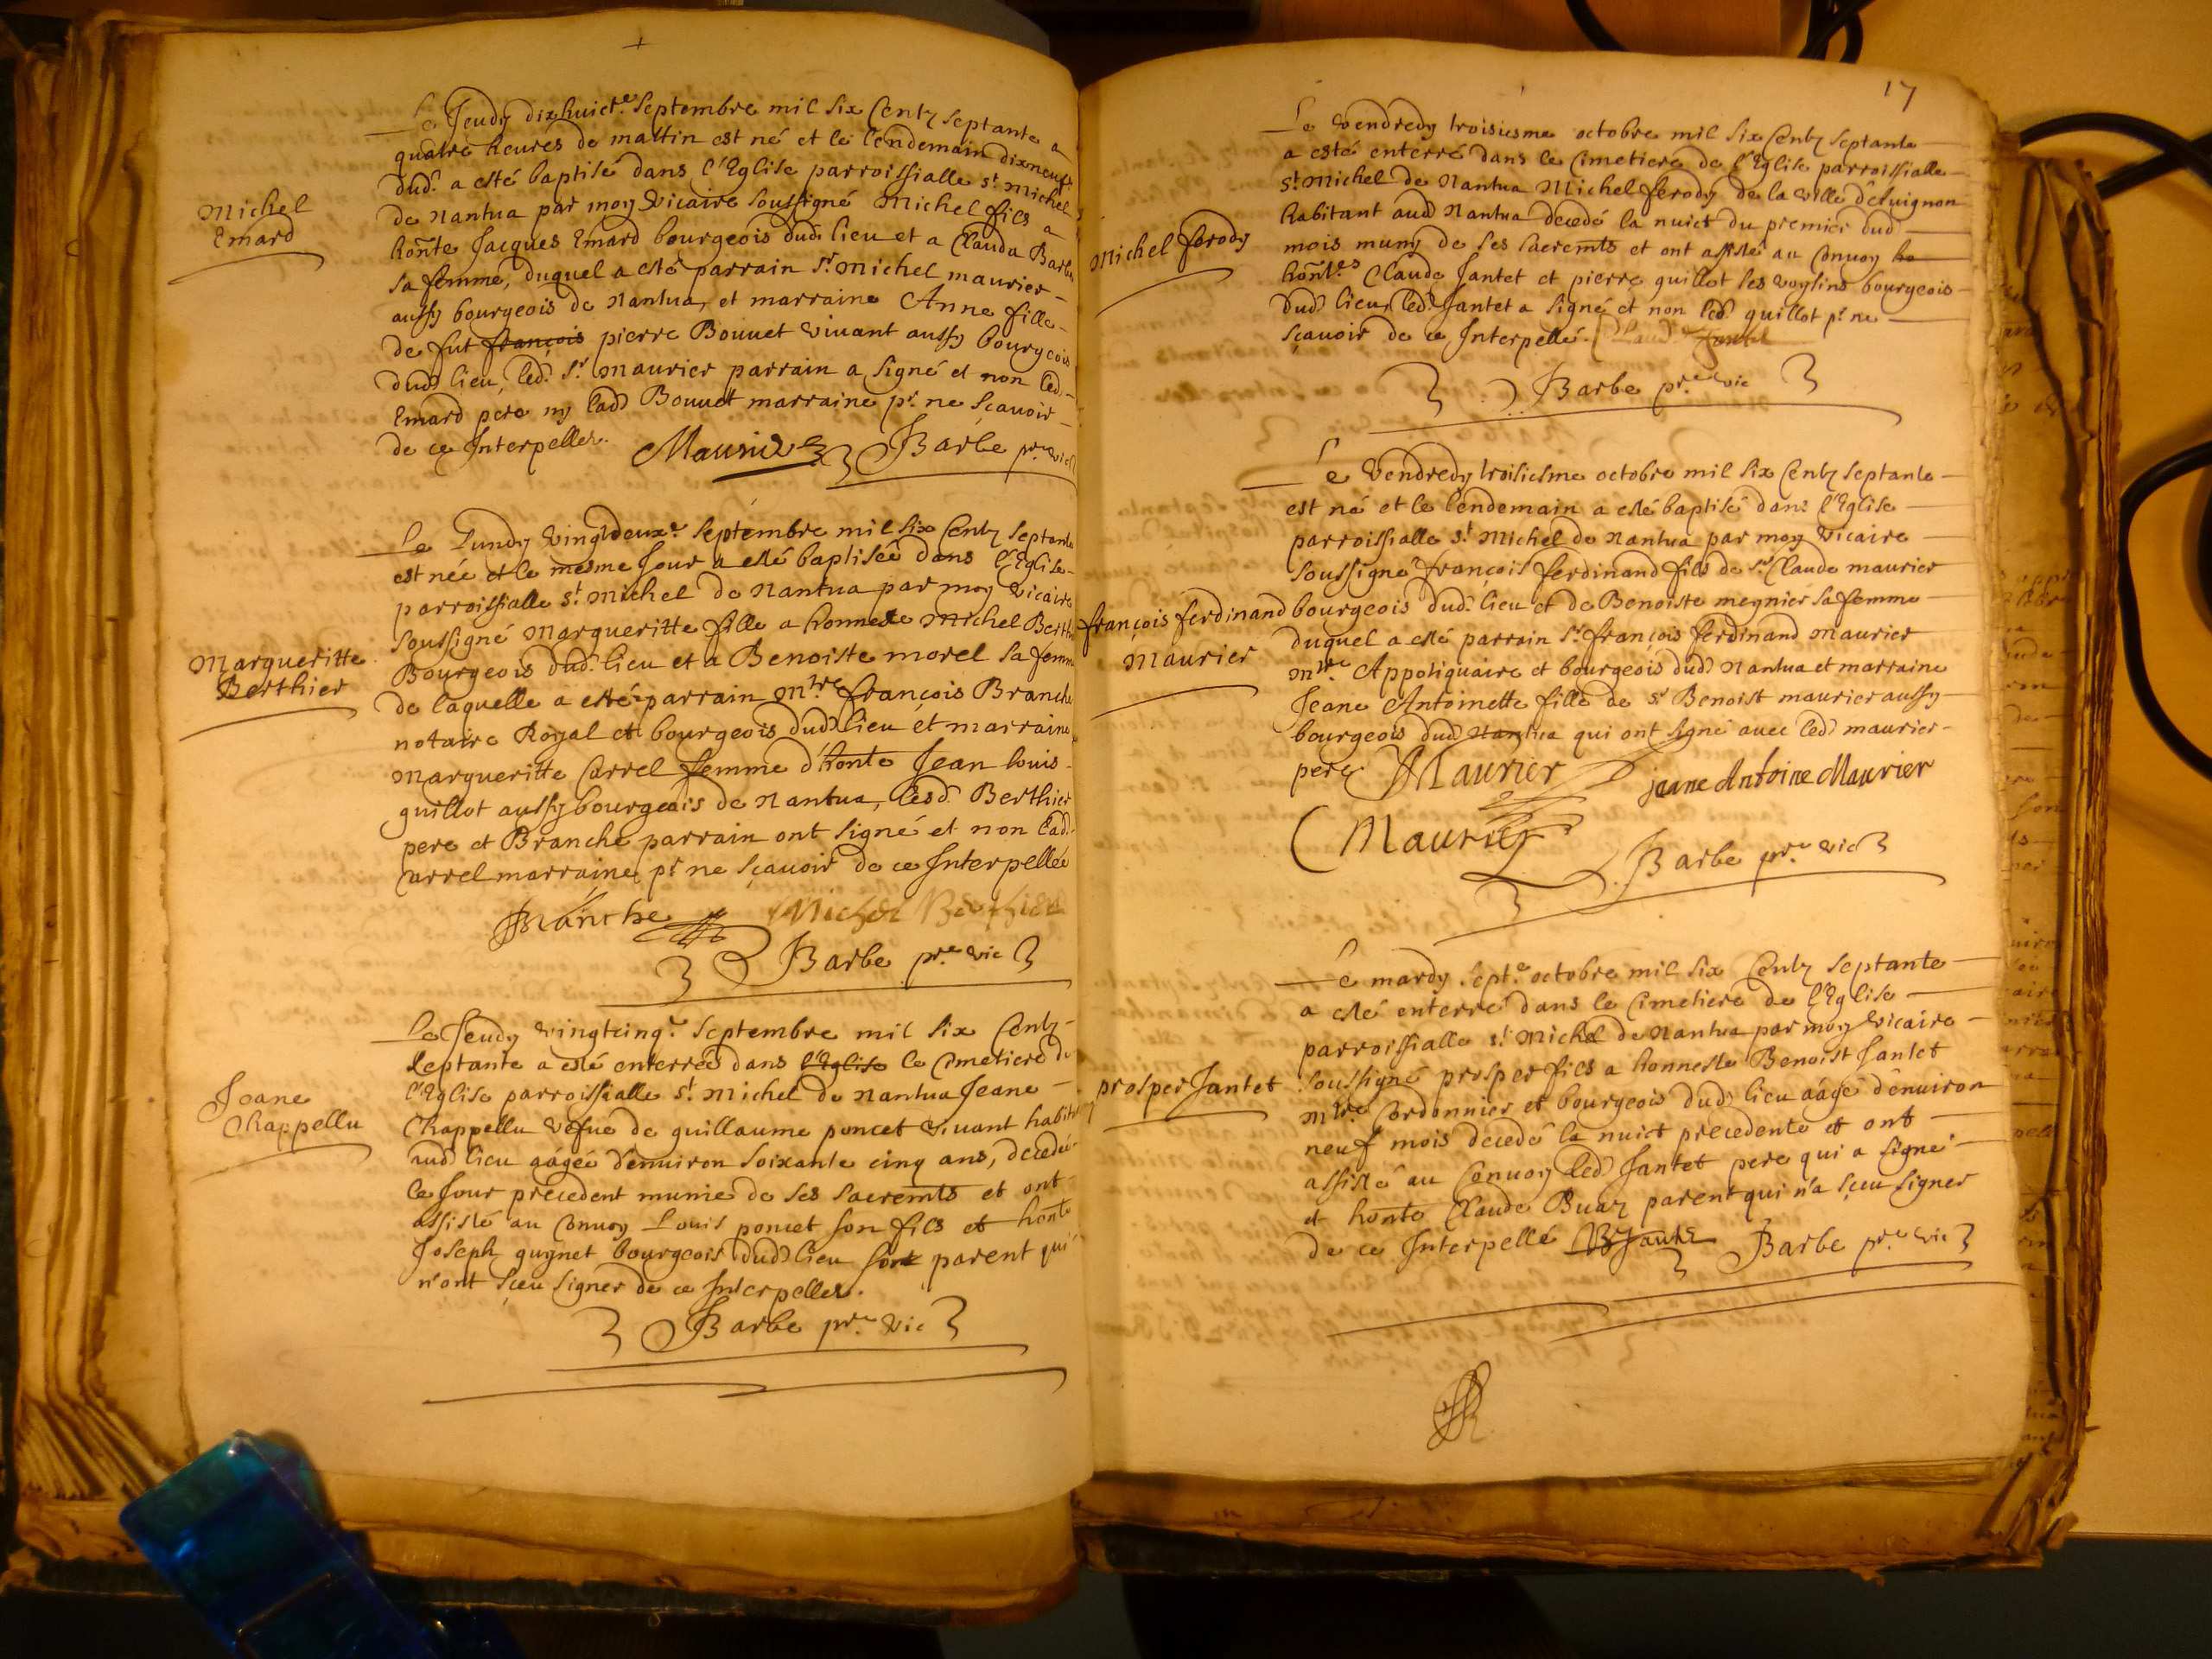 Le Jeudy dixhuict.e Septembre mil six Centz septante a
quatre heures de mattin est né et le lendemain dixneuf.
dud.t a esté baptisé dans l'Eglise parroissialle st. Michel
de Nantua par moy Vicaire soussigné Michel fils a
hon̄te Jacques Emard bourgeois dud. lieu et a Clauda Barbe
sa femme, duquel a esté parrain sr. Michel maurier -
aussy bourgeois de Nantua, et marraine Anne fille -
de fut françois pierre Bouuet viuant aussy bourgeois
dud. lieu, led. sr. maurier parrain a signé et non led. -
Emard pere ny lad Bouuet marraine pr. ne sçauoir -
de ce Interpellez.
Maurier Barbe pre. vic
Michel
Emard
Le Lundy Vingtdeux.e septembre mil six Centz septante
est née et le mesme Jour a esté baptisée dans l'Eglise -
parroissialle st. Michel de Nantua par moy Vicaire
soussigné Margueritte fille a honneste Michel Berth
Bourgeois dud. lieu et a Benoiste morel sa femme
de laquelle a esté parrain mtre. françois Branche
notaire Royal et bourgeois dud. lieu et marraine
Margueritte Carrel femme d'honte Jean louis -
guillot aussy bourgeois de Nantua, lesd. Berthier
pere et Branche parrain ont signé et non lad.
Carrel marraine pr ne sçauoir de ce Interpellée
Branche Michel Berthier
Barbe pre. vic
Margueritte
Berthier
Le Jeudy vingtcinq.e septembre mil six Centz -
septante a esté enterrée dans l'Eglise le Cimetiere de
l'Eglise parroissialle st. Michel de Nantua Jeane -
Chappellu vefue de guillaume poncet viuant habit
aud. lieu aagée d'enuiron soixante cinq ans, decedée
le Jour precedent munie de ses sacremts et ont -
assisté au Conuoy Louis poncet son fils et honte
Joseph guynet bourgeois dud. lieu son parent qui
n'ont sceu signer de ce Interpellez.
Barbe pre. vic
Jeane
Chappellu
17
Le Vendredy troisiesme octobre mil six Centz septante
a esté enterré dans le Cimetiere de l'Eglise parroissialle -
st. Michel de Nantua Michel ferody de la ville d'Auignon
habitant aud Nantua decedé la nuict du premier dud -
mois muny de ses sacremts et ont assisté au Conuoy ho
hon̄tes Claude Jantet et pierre guillot ses voysins bourgeois -
dud. lieu, led. Jantet a signé et non led. guillot pr. ne -
sçauoir de ce Interpellé. Claude Jantet
Barbe pre. vic
Michel ferody
Le Vendredy troisiesme octobre mil six Centz septante -
est né et le lendemain a esté baptisé dans l'Eglise -
parroissialle st. Michel de Nantua par moy Vicaire -
soussigné françois ferdinand fils de sr Claude maurier
bourgeois dud. lieu et de Benoiste meynier sa femme -
duquel a esté parrain sr. françois ferdinand maurier
mtre. Appotiquaire et bourgeois dud. Nantua et marraine
Jeane Antoinette fille de sr Benoist maurier aussy -
bourgeois dud. Nantua qui ont signé auec led. maurier -
pere Maurier jeane Antoine Maurier
Maurier
Barbe pre. vic
françois ferdinand
Maurier
Le mardy sept.e octobre mil six Centz septante -
a esté enterré dans le Cimetiere de l'Eglise -
parroissialle st. Michel de Nantua par moy vicaire -
soussigné prosper fils a honneste Benoist Jantet
mtre Cordonnier et bourgeois dud. lieu aagé d'enuiron
neuf mois decedé la nuict precedente et ont -
assisté au Conuoy led. Jantet pere qui a signé -
et honte Claude Buaz parent qui n'a sçeu signer
de ce Interpellé BJantet Barbe pre. vic
prosper Jantet